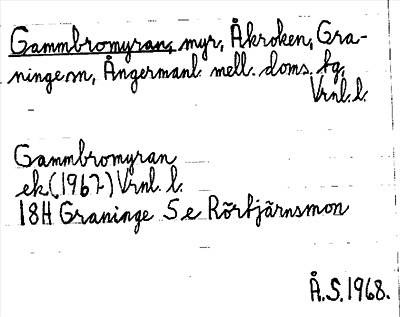 Gammbromyran, myr, Åkroken, Gra-
ninge sn, Ångermanl. mell. doms. fg,
Vrnl. l.
Gammbromyran
ek (1967) Vrnl. l.
18H Graninge 5 e Rörtjärnsmon
Å.S. 1968.